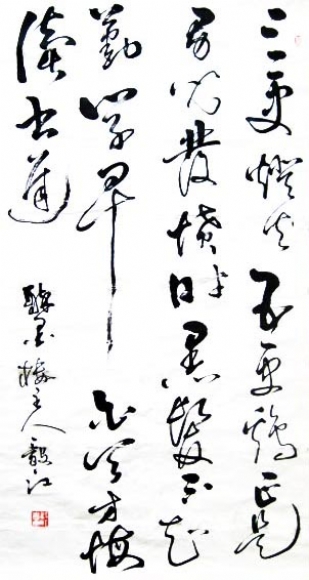 三更燈火五更鷄正是
男兒發憤時黑髮不知
勤學早白首方悔
讀书遲
醉墨樓主人毅江